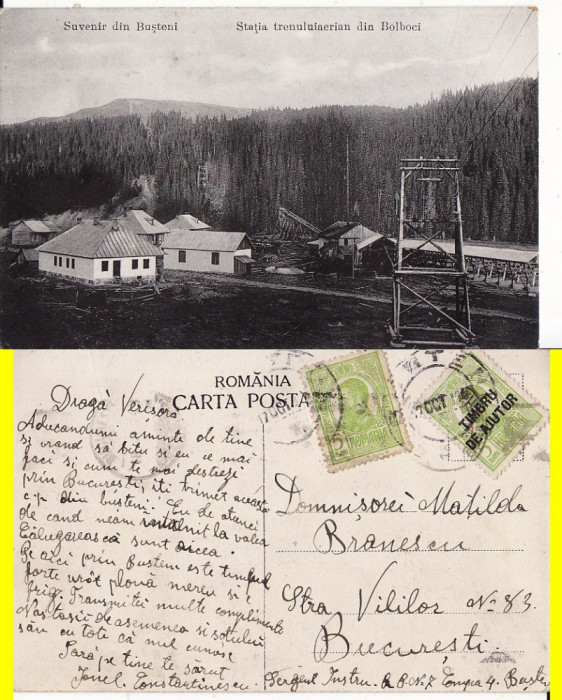 Suvenir din Bușteni
Stația trenuluiaerian din Bolboci
ROMÂNIA
CARTA POSTA
7 OCT
7 OCT
ROMANIA
TIMBRU
DE AJUTOR
Dragă Verișoră
Aducandumi aminte de tine
și vrand să știu și eu ce mai
faci și cum te mai
prin București, iți trimet aceasta
c.p. din bușteni. Eu de atunci
de cand neam intalnit la valea
Călugarească sunt aicea.
Pe aici prin Bușteni este timpul
forte urât plouă mereu și e
frig. Transmitei multe complimente
Nastasii deasemenea si soțului
său cu tote că nul cunosc
Pară pe tine te sărut
Ionel Constantinescu
Domnișorei Matilda
Brănescu
Stra Viilor No 83.
București.
Sergent Instru. Compa 4. Bușteni